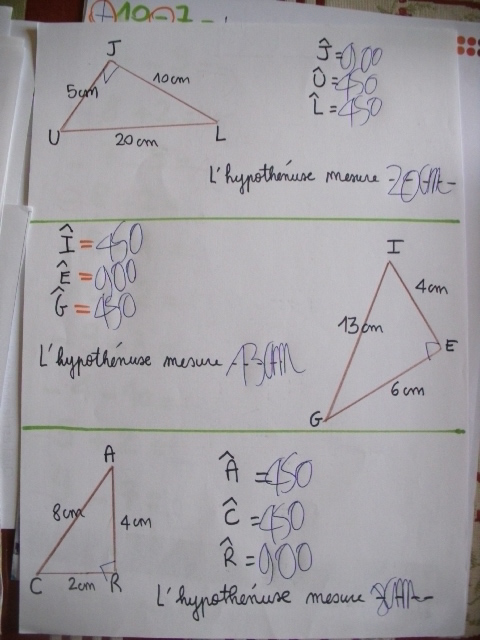 +10-7-
J
5cm
10cm
U
20cm
L
Ĵ=900
Û=450
L̂=450
L'hypothénuse mesure 20cm
Î=450
Ê=900
Ĝ=450
L'hypothénuse mesure 13cm
I
4cm
13cm
E
6cm
G
A
8cm
4cm
C
2cm
R
Â=450
Ĉ=450
R̂=900
L'hypothénuse mesure